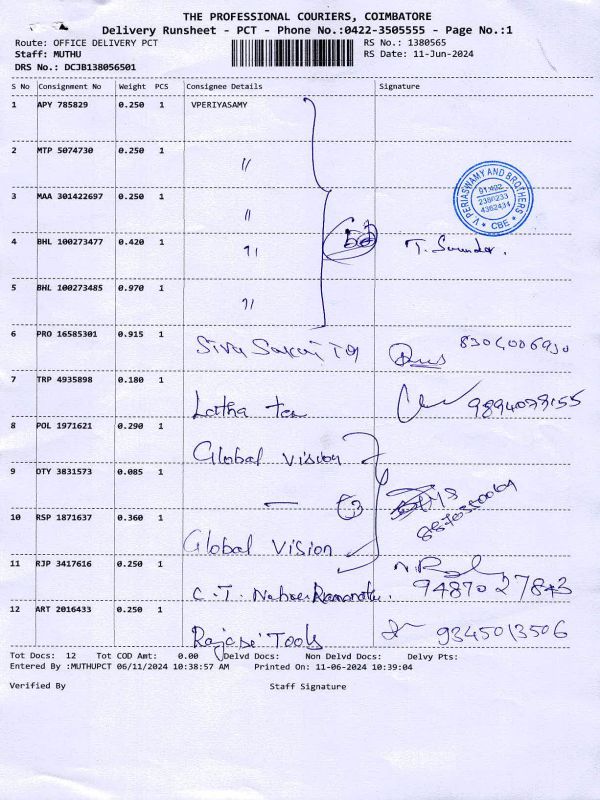 THE PROFESSIONAL COURIERS, COIMBATORE
Delivery Runsheet - PCT - Phone No.:0422-3505555 - Page No.:1
Route: OFFICE DELIVERY PCT RS No.: 1380565
Staff: MUTHU RS Date: 11-Jun-2024
DRS No.: DCJB138056501
S No Consignment No Weight PCS Consignee Details Signature
1 APY 785829 0.250 1 VPERIYASAMY
2 MTP 5074730 0.250 1 "
V PERIASWAMY AND BROTHERS
91-422
2380233
4362434
* CBE *
3 MAA 301422697 0.250 1 "
4 BHL 100273477 0.420 1 "
5 BHL 100273485 0.970 1 "
6 PRO 16585301 0.915 1 8304006930
7 TRP 4935898 0.180 1 Latha
8 POL 1971621 0.290 1 Global Vision
9 OTY 3831573 0.085 1 —
10 RSP 1871637 0.360 1 Global Vision
11 RJP 3417616 0.250 1 C. T.
12 ART 2016433 0.250 1 Tools 9345013506
Tot Docs: 12 Tot COD Amt: 0.00 Delvd Docs: Non Delvd Docs: Delvy Pts:
Entered By :MUTHUPCT 06/11/2024 10:38:57 AM Printed On: 11-06-2024 10:39:04
Verified By Staff Signature